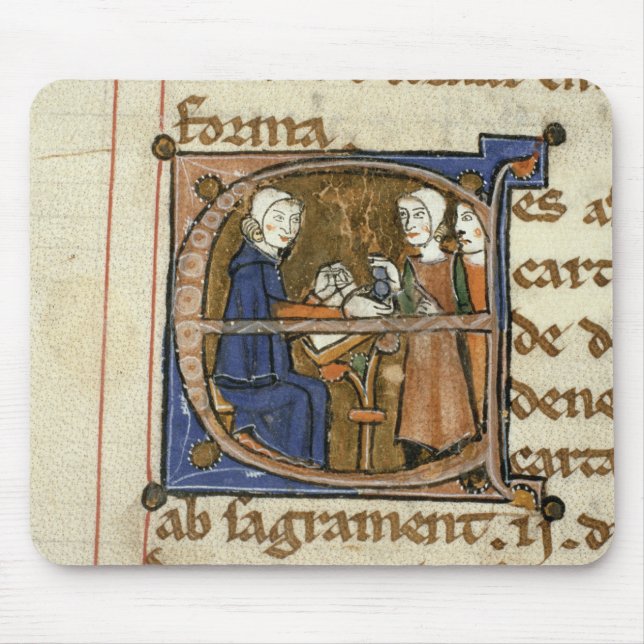 forma.
es a
cart
de d
dene
carta
ab sagrament. ij. d